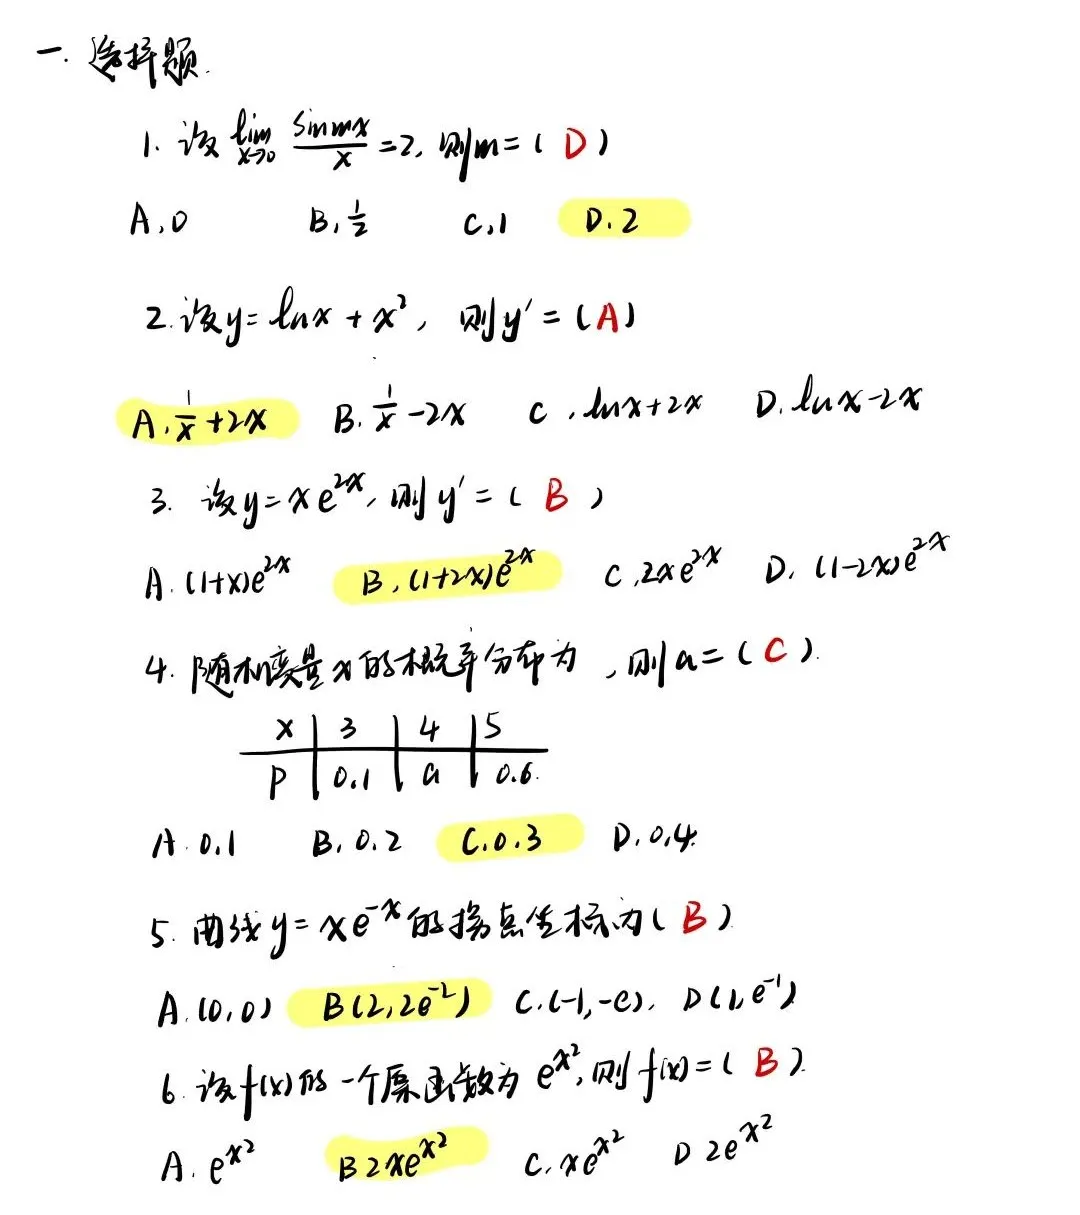 一. 选择题.
1. 设 lim x→0 sinmx/x =2, 则m=( D )
A.0 B.1/2 C.1 D.2
2.设y=lnx+x², 则y'=(A)
A.1/x+2x B.1/x-2x C.lnx+2x D.lnx-2x
3. 设y=xe^2x, 则y'=( B )
A.(1+x)e^2x B.(1+2x)e^2x C.2xe^2x D.(1-2x)e^2x
4. 随机变量x的概率分布为 ,则a=( C ).
X 3 4 5
P 0.1 a 0.6.
A.0.1 B.0.2 C.0.3 D.0.4.
5. 曲线y=xe^-x的拐点坐标为( B )
A.(0,0) B(2,2e^-2) C.(-1,-e). D(1,e^-1)
6.设f(x)的一个原函数为e^x²,则f(x)=( B ).
A.e^x² B 2xe^x² C.xe^x² D 2e^x²